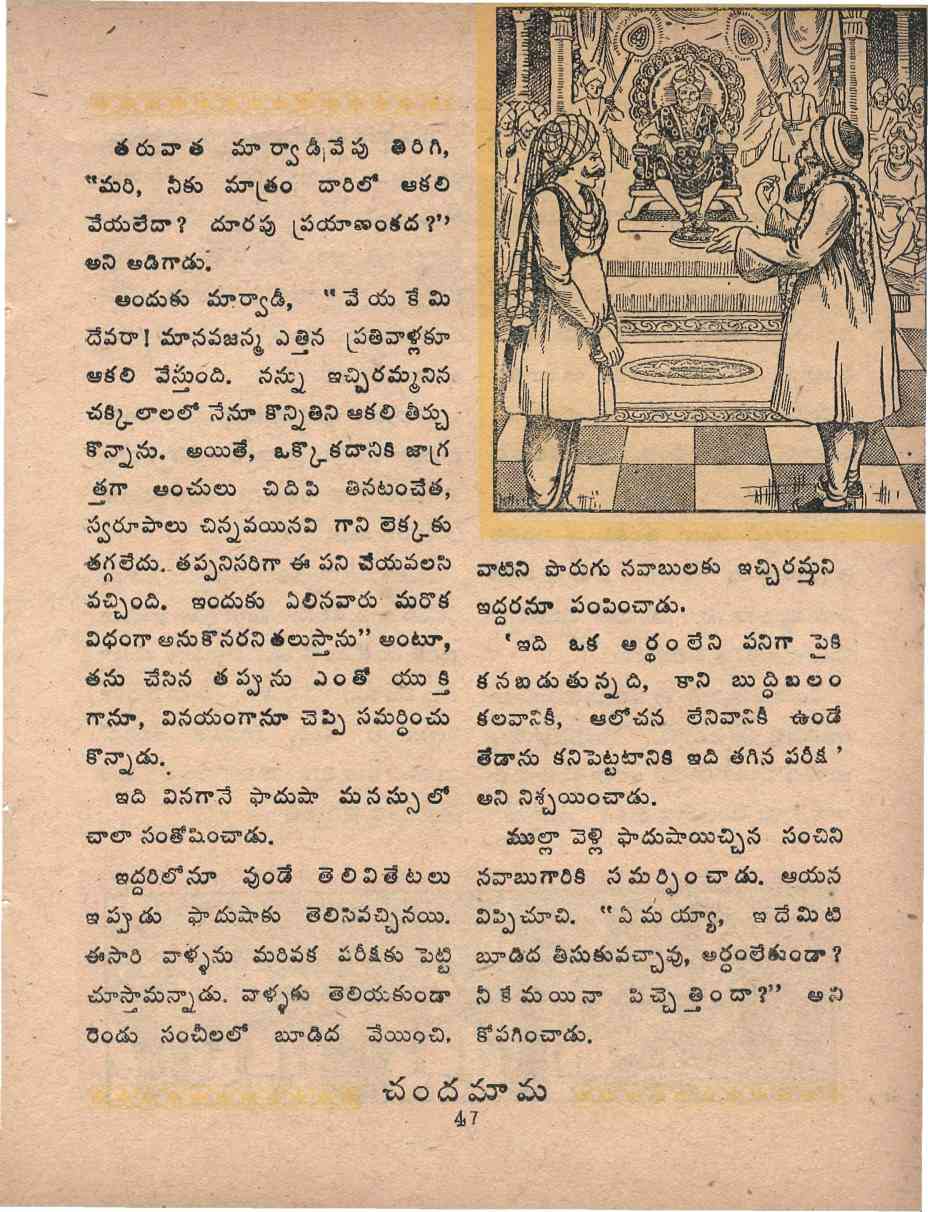 తరువాత మార్వాడీవేపు తిరిగి,
"మరి, నీకు మాత్రం దారిలో ఆకలి
వేయలేదా? దూరపు ప్రయాణంకద?"
అని అడిగాడు.
అందుకు మార్వాడీ, "వేయకేమి
దేవరా! మానవజన్మ ఎత్తిన ప్రతివాళ్లకూ
ఆకలి వేస్తుంది. నన్ను ఇచ్చిరమ్మనిన
చక్కిలాలలో నేనూ కొన్నితిని ఆకలి తీర్చు
కొన్నాను. అయితే, ఒక్కొకదానికి జాగ్ర
త్తగా అంచులు చిదిపి తినటంచేత,
స్వరూపాలు చిన్నవయినవి గాని లెక్కకు
తగ్గలేదు. తప్పనిసరిగా ఈ పని చేయవలసి
వచ్చింది. ఇందుకు ఏలినవారు మరొక
విధంగా అనుకొనరని తలుస్తాను" అంటూ,
తను చేసిన తప్పును ఎంతో యుక్తి
గానూ, వినయంగానూ చెప్పి సమర్ధించు
కొన్నాడు.
ఇది వినగానే ఫాదుషా మనస్సులో
చాలా సంతోషించాడు.
ఇద్దరిలోనూ వుండే తెలివితేటలు
ఇప్పుడు ఫాదుషాకు తెలిసివచ్చినయి.
ఈసారి వాళ్ళను మరివక పరీక్షకు పెట్టి
చూస్తామన్నాడు. వాళ్ళకు తెలియకుండా
రెండు సంచీలలో బూడిద వేయించి,
వాటిని పొరుగు నవాబులకు ఇచ్చిరమ్మని
ఇద్దరనూ పంపించాడు.
'ఇది ఒక అర్థంలేని పనిగా పైకి
కనబడుతున్నది, కాని బుద్ధిబలం
కలవానికీ, ఆలోచన లేనివానికీ ఉండే
తేడాను కనిపెట్టటానికి ఇది తగిన పరీక్ష'
అని నిశ్చయించాడు.
ముల్లా వెళ్లి ఫాదుషాయిచ్చిన సంచిని
నవాబుగారికి సమర్పించాడు. ఆయన
విప్పిచూచి. "ఏమయ్యా, ఇదేమిటి
బూడిద తీసుకువచ్చావు, అర్ధంలేకుండా?
నీకేమయినా పిచ్చెత్తిందా?" అని
కోపగించాడు.
చందమామ
47